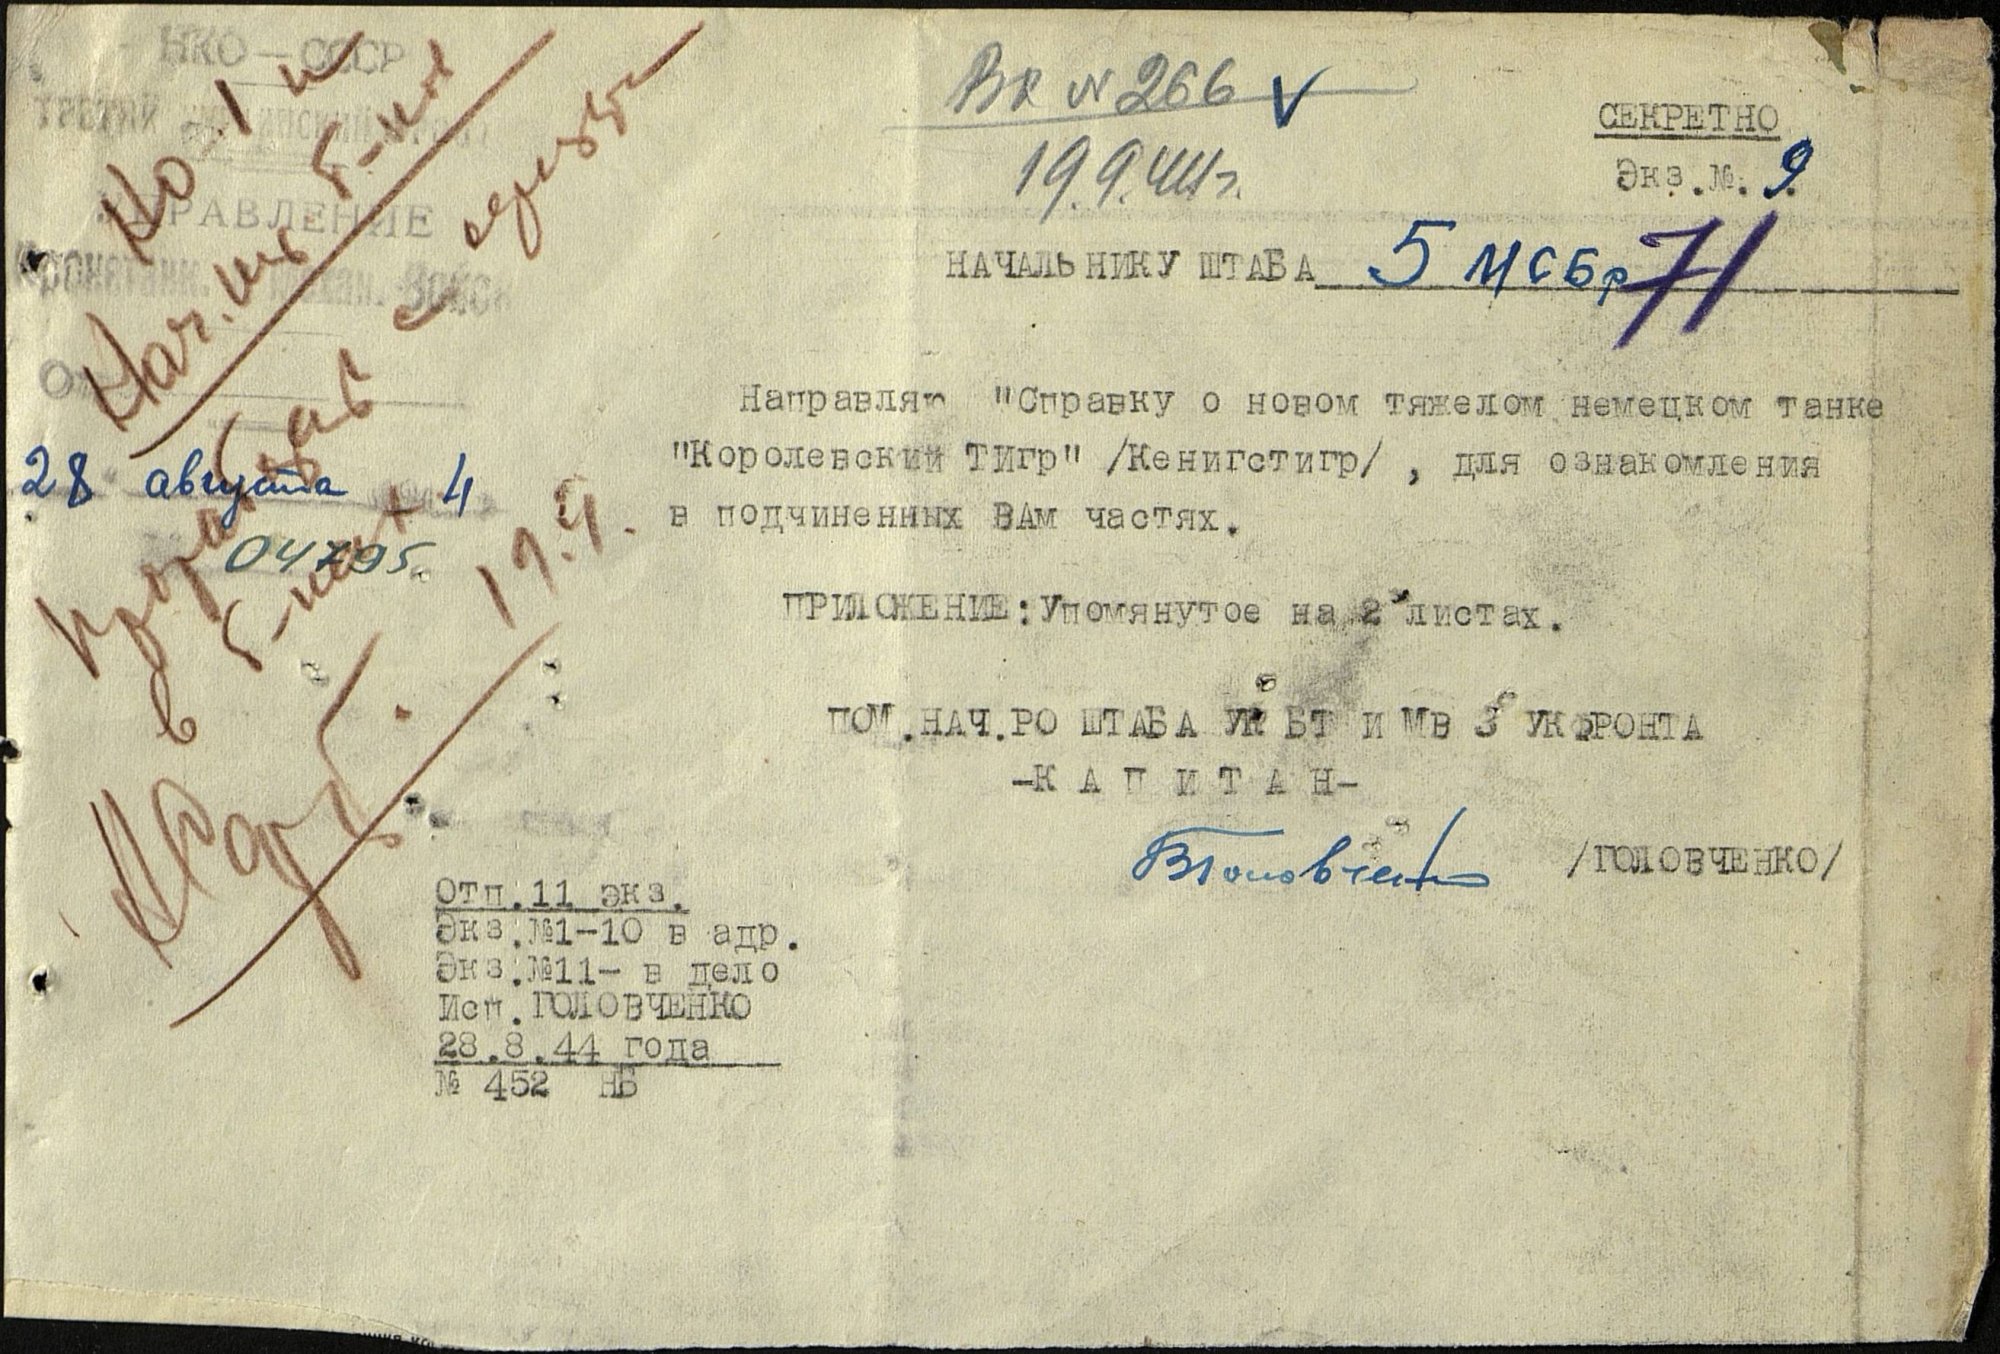 НКО-СССР
ТРЕТИЙ
УПРАВЛЕНИЕ
28 августа 4
04795
Вх N 266
19.9.44г.
СЕКРЕТНО
Экз.№. 9
НАЧАЛЬНИКУ ШТАБА 5 МСБр 71
Направляю "Справку о новом тяжелом немецком танке
"Королевский ТИгр" /Кенигстигр/, для ознакомления
в подчиненных ВАм частях.
ПРИЛОЖЕНИЕ: Упомянутое на 2 листах.
ПОМ.НАЧ.РО ШТАБА УК БТ И МВ 3 УКФРОНТА
-К А П И Т А Н-
/ГОЛОВЧЕНКО/
19.9.
Отп.11 экз.
Экз.№1-10 в адр.
Экз.№11- в дело
Исп. ГОЛОВЧЕНКО
28.8.44 года
№ 452 НБ